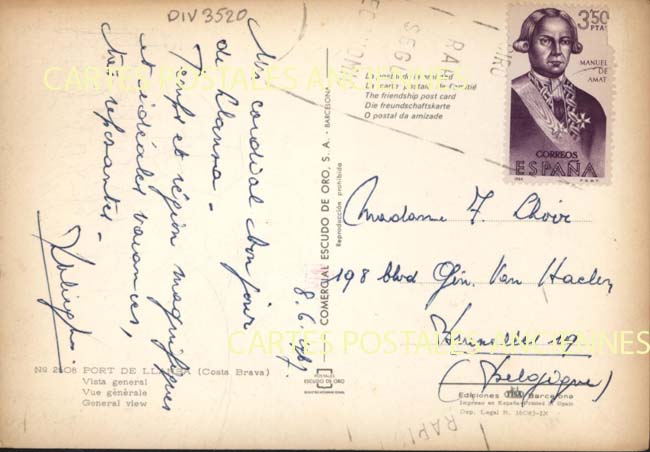 DIV 3520
Un cordial bonjour
de Llansa -
Temps et région magnifiques
et idéales vacances,
très reposantes -
8.6.1967.
Madame F. Choir
198 blvd Gén. Van Haelen
Bruxelles 19
(Belgique)
3,50
PTAS
MANUEL
DE
AMAT
CORREOS
ESPAÑA
La postal de amistad
La carte postale de l'amitié
The friendship post card
Die freundschaftskarte
O postal da amizade
COMERCIAL ESCUDO DE ORO, S. A. - BARCELONA
Reproducción prohibida
POSTALES
ESCUDO DE ORO
Nº 2508 PORT DE LLANSA (Costa Brava)
Vista general
Vue générale
General view
Ediciones Barcelona
Impreso en España - Printed in Spain
Dep. Legal B. 16083-IX
CARTES POSTALES ANCIENNES
CARTES POSTALES ANCIENNES